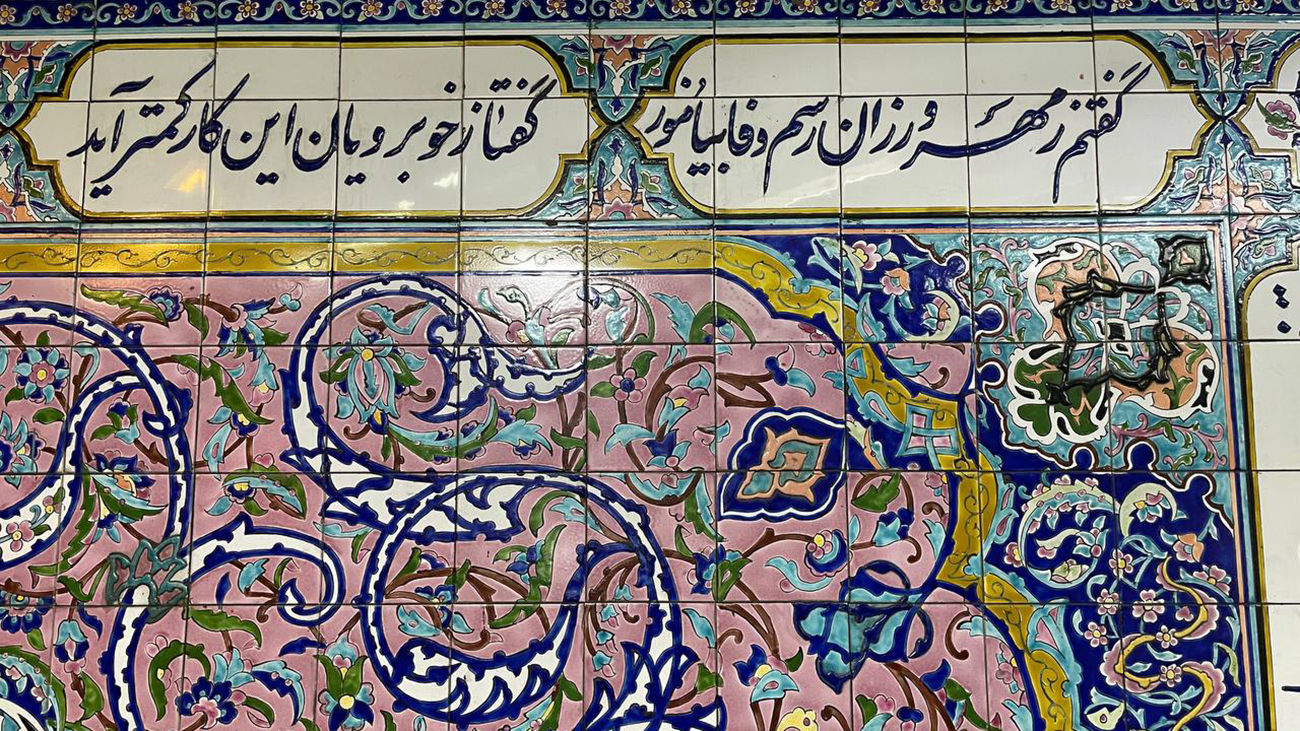 گفتم ز مهر ورزان رسم وفا بیاموز
گفتا ز خوبرویان این کار کمتر آید